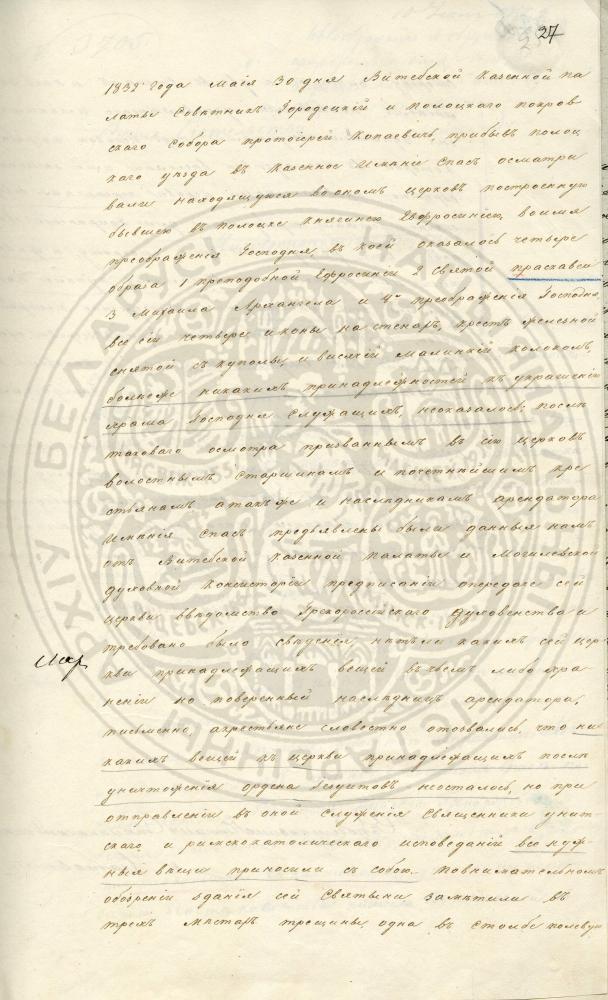 27
1832 года маія 30 дня Витебской Казенной па
латы Советникъ Городецкій и полоцкаго покров
скаго Собора протоіерей Копаевичь, прибывъ полоц
каго уезда въ Казенное Именіе Спасъ осматри
вали находящуюся во ономъ церковь построенную
бывшею въ полоцке Княгинею Евфросиніею, во имя
преображенія Господня, въ коей оказалось четыре
образа 1 преподобной Ефросиніи 2 Святой праскавеи
3 Михаила Архангела и 4й преображенія Господня,
все сіи четыре иконы на стенахъ, крестъ железной
снятой съ куполы, и висячій малинкій колоколъ,
больеже никакихъ принадлежностей къ украшенію
храма Господня служащихъ, неоказалось; после
таковаго осмотра призваннымъ въ сію церковь
волостнымъ старшинамъ и почетнейшимъ кре
стьянамъ атакъже и наследникамъ арендатора
Именія Спасъ предъявлены были данныя намъ
отъ Витебской Казенной палаты и Могилевской
духовной Консисторіи предписаніи опередаче сей
церкви введомство Грекороссійскаго Духовенства и
требовано было сведенея, нетъли какихъ сей цер
кви принадлежащихъ вещей въ чьемъ либо хра
неніи но поверенный наследницъ арендатора,
письменно, акрестьяне словестно отозвались, что ни
какихъ вещей къ церкви принадлежащихъ после
уничтоженія ордена Іезуитовъ неосталось, но при
отправленіи въ оной служенія Священники унит
скаго, и римскокатолическаго исповеданій все нуж
ныя вещи приносили съ собою. Повнимательномъ
обозреніи зданія сей Святыни заметили въ
трехъ местахъ трещины одна въ столбе полевую
БЕЛАРУСІ